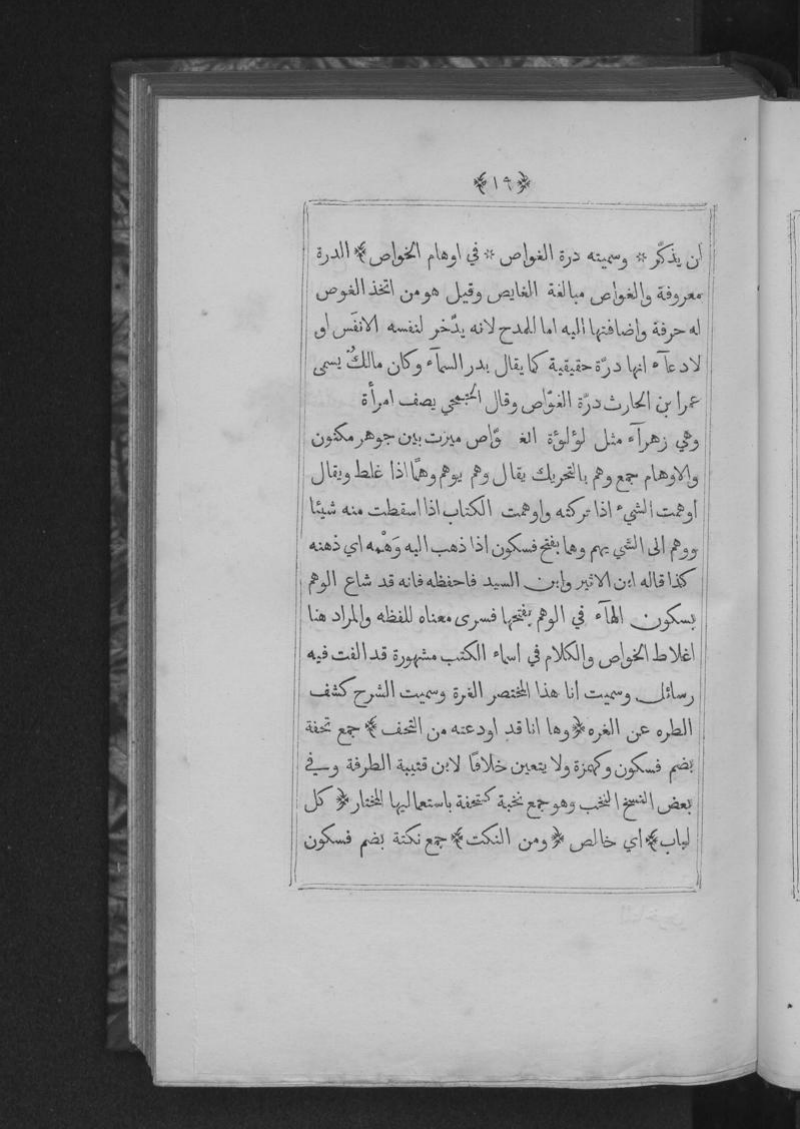 ﴿١٩﴾
ان يذكّر * وسميته درة الغواص * في اوهام الخواص﴾ الدرة
معروفة والغواص مبالغة الغايص وقيل هو من اتخذ الغوص
له حرفة واضافتها اليه اما للمدح لانه يدّخر لنفسه الانفَس او
لادعآء انها درّة حقيقية كما يقال بدر السمآء وكان مالكٌ يسمى
عمرا بن الحارث درّة الغوّاص وقال يصف امرأة
وهي زهرآء مثل لؤلؤة الغـ ـوّاص ميزت بين جوهر مكنون
والاوهام جمع وهم بالتحريك يقال وهم يوهم وهمًا اذا غلط ويقال
اوهمت الشيء اذا تركته واوهمت الكتاب اذا اسقطت منه شيئا
ووهم الى الشي يهم وهما بفتح فسكون اذا ذهب اليه وَهْمه اي ذهنه
كذا قاله ابن الاثير وابن السيد فاحفظه فانه قد شاع الوهم
بسكون الهآء في الوهم بفتحها فسرى معناه للفظه والمراد هنا
اغلاط الخواص والكلام في اسماء الكتب مشهورة قد الفت فيه
رسائل وسميت انا هذا المختصر الغرة وسميت الشرح كشف
الطره عن الغره ﴿وها انا قد اودعته من التحف﴾ جمع تحفة
بضم فسكون وكهمزة ولا يتعين خلافًا لابن قتيبة الطرفة وفي
بعض النسخ النخب وهو جمع نخبة كتحفة باستعماليها المختار ﴿كل
لباب﴾ اي خالص ﴿ومن النكت﴾ جمع نكتة بضم فسكون